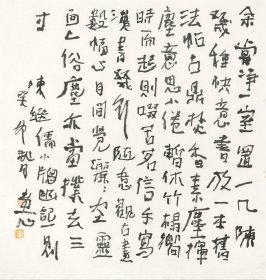 余嘗淨一室置一几陳
幾種快意書放一本舊
法帖古鼎焚香素麈揮
塵意思小倦暫休竹榻
時而起則啜苦茗信手寫
漢書幾行隨意觀古畫
數幅心目間覺灑灑空靈
面上俗塵亦當撲去三
寸
陳繼儒小窗幽記一則
癸卯秋月